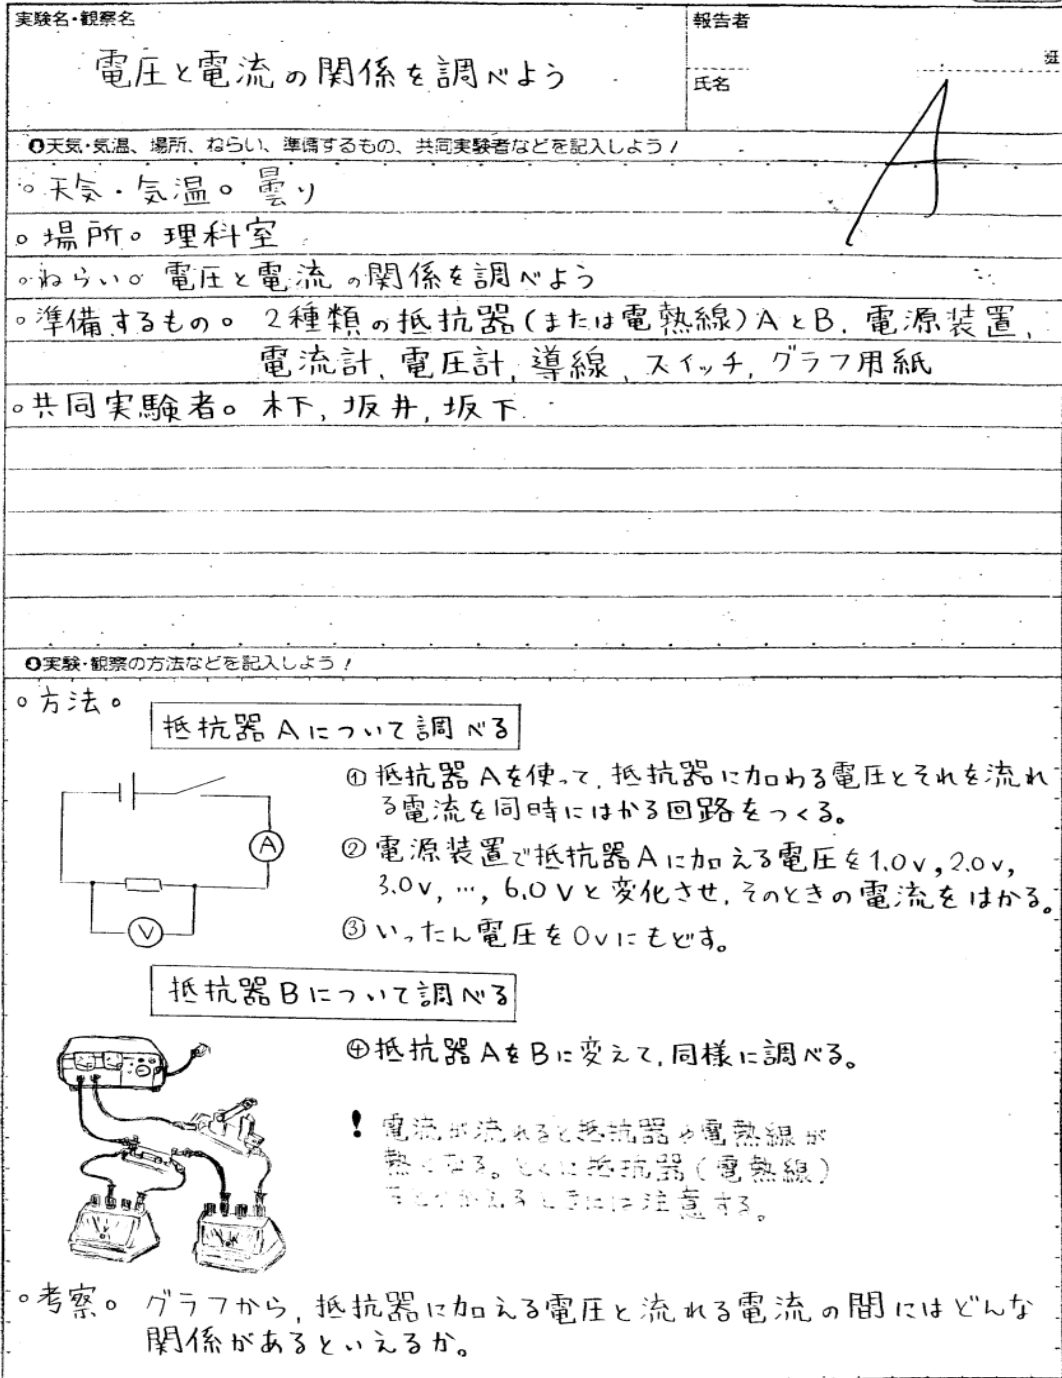 実験名・観察名
報告者
電圧と電流の関係を調べよう
班
氏名
A
❶天気・気温、場所、ねらい、準備するもの、共同実験者などを記入しよう!
。天気・気温。曇り
。場所。理科室
。ねらい。電圧と電流の関係を調べよう
。準備するもの。2種類の抵抗器(または電熱線)AとB,電源装置,
電流計,電圧計,導線,スイッチ,グラフ用紙
。共同実験者。木下,坂井,坂下
❷実験・観察の方法などを記入しよう!
。方法。
抵抗器Aについて調べる
①抵抗器Aを使って,抵抗器に加わる電圧とそれを流れ
る電流を同時にはかる回路をつくる。
A
②電源装置で抵抗器Aに加える電圧を1.0v,2.0v,
3.0v,…,6.0Vと変化させ,そのときの電流をはかる。
V
③いったん電圧を0vにもどす。
抵抗器Bについて調べる
④抵抗器AをBに変えて,同様に調べる。
!電流が流れると抵抗器や電熱線が
熱くなる。とくに抵抗器(電熱線)
をとりかえるときには注意する。
。考察。グラフから,抵抗器に加える電圧と流れる電流の間にはどんな
関係があるといえるか。